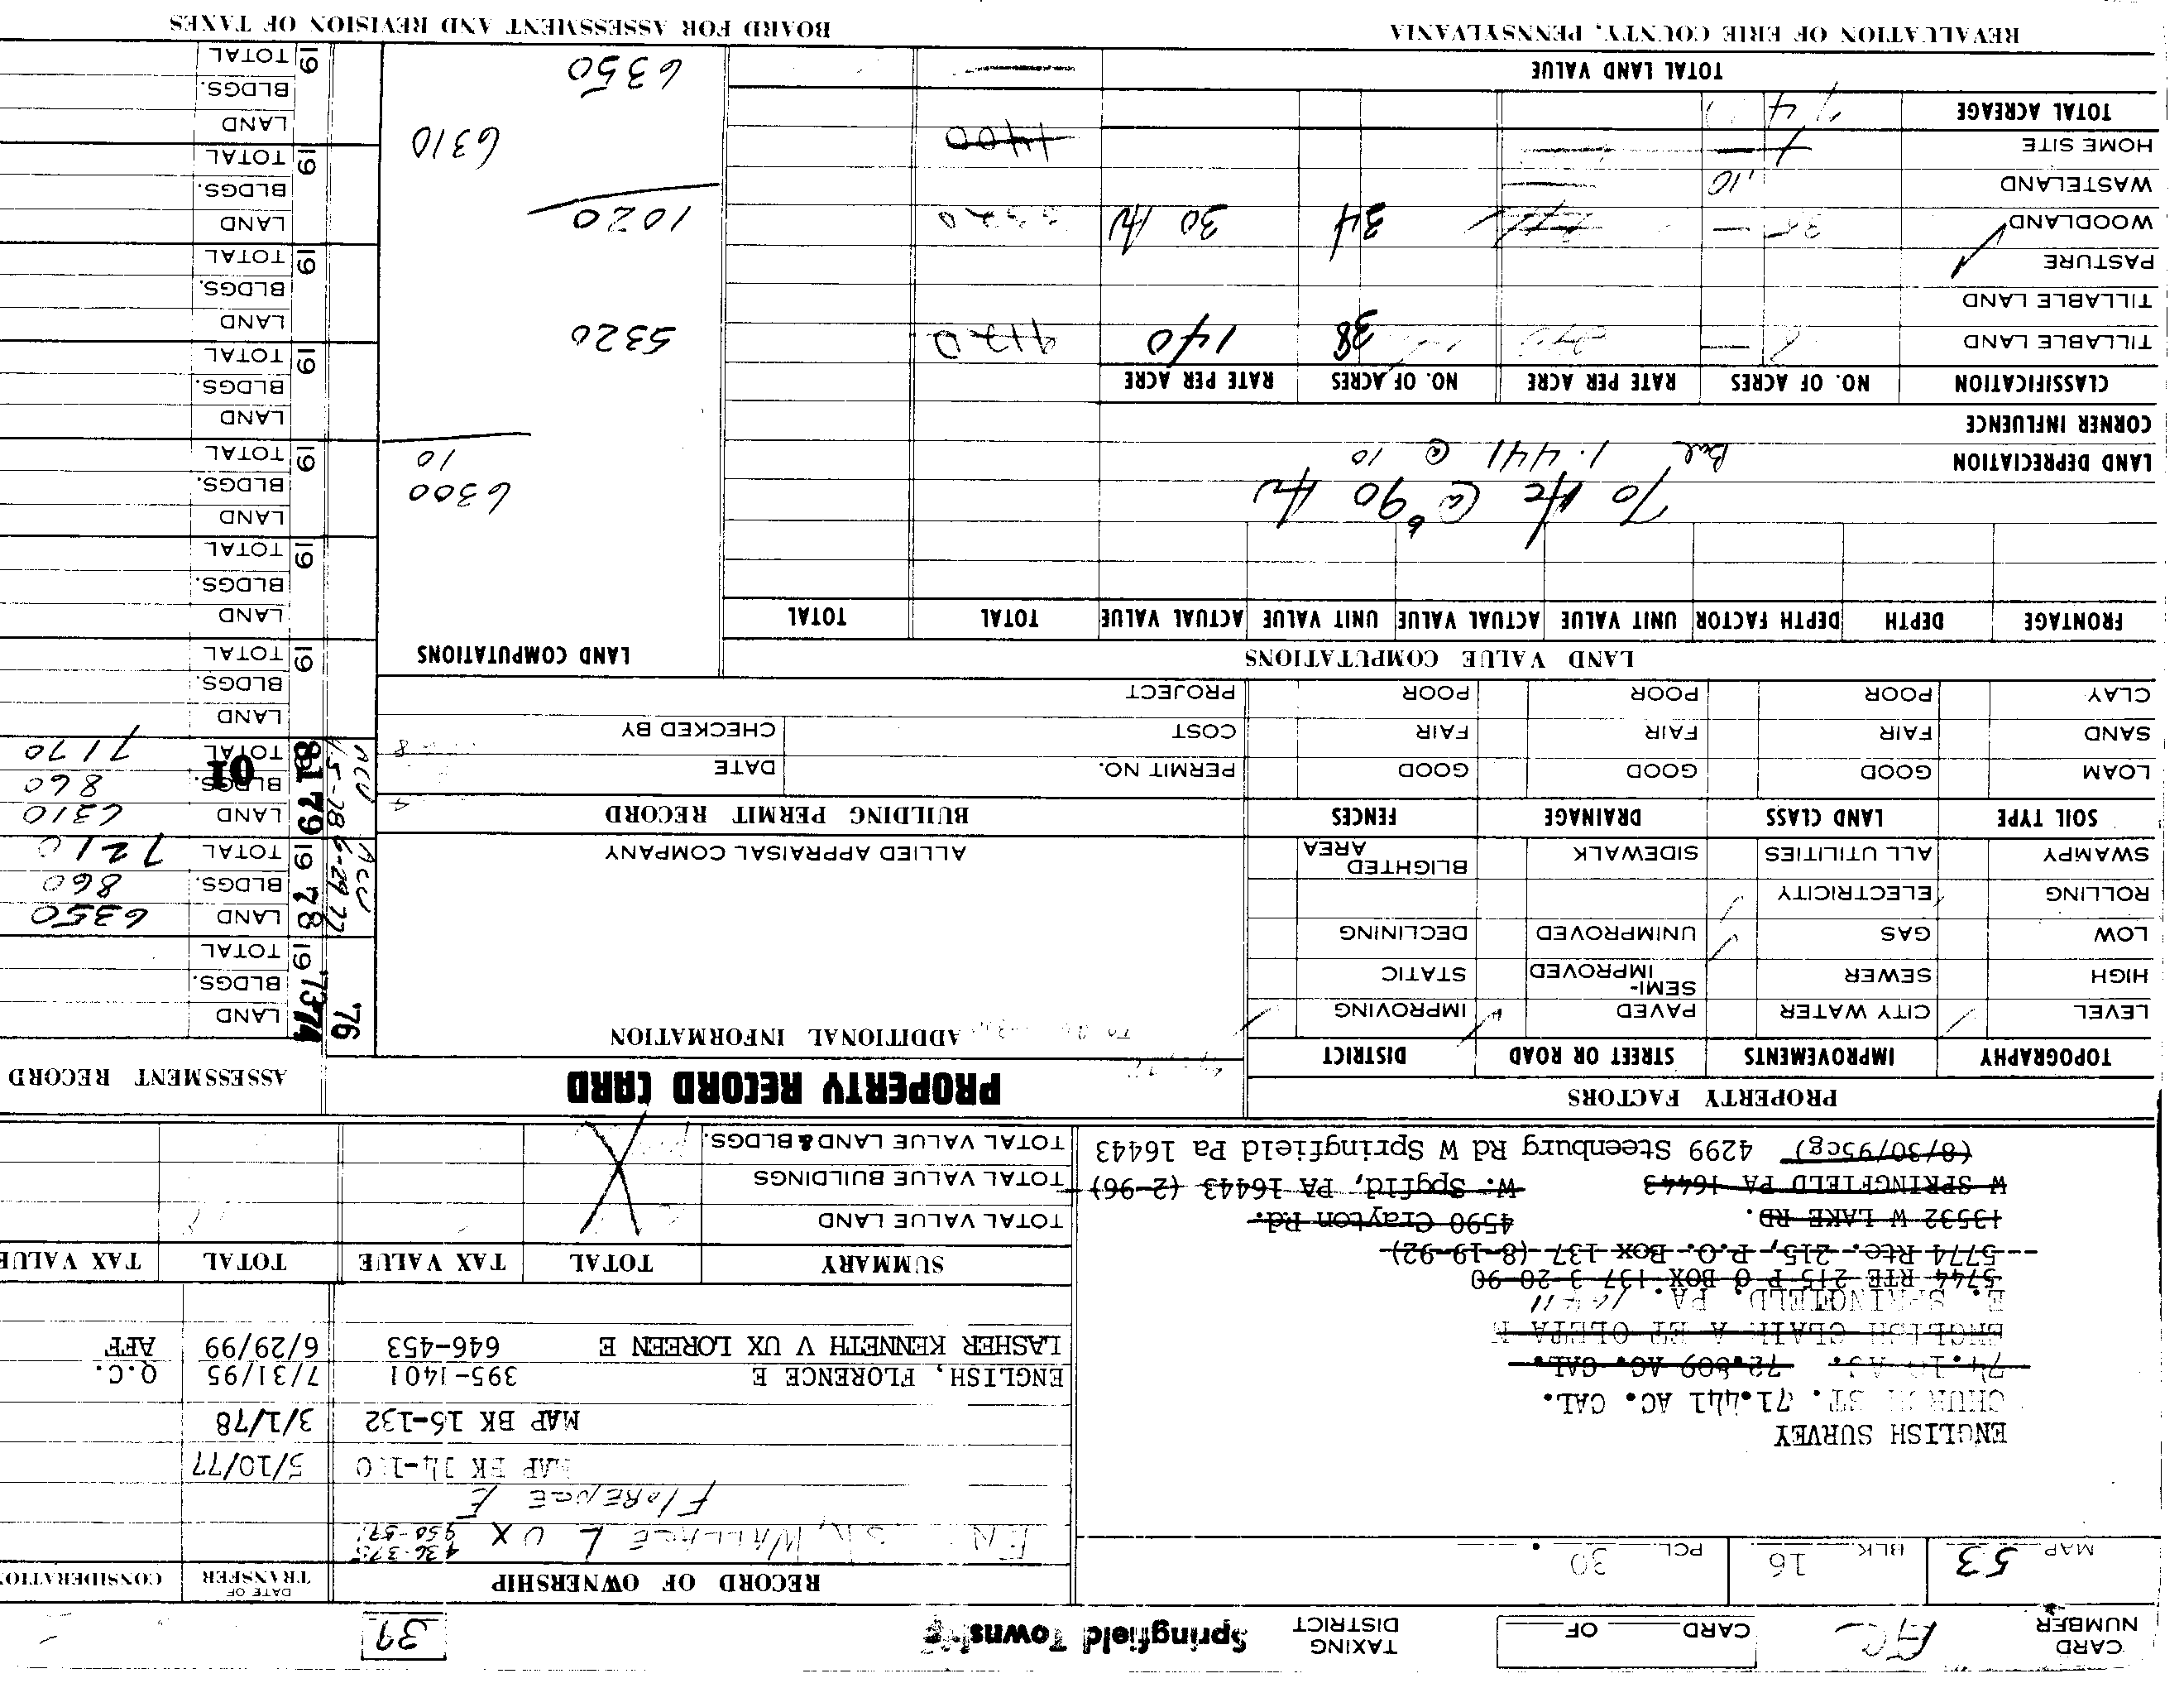 CARD NUMBER
CARD OF
TAXING DISTRICT Springfield Township
39
MAP 53 BLK 16 PCL 30
RECORD OF OWNERSHIP DATE OF TRANSFER CONSIDERATION
WALLACE L UX 436-375
FLORENCE E
MAP BK 5/10/77
MAP BK 16-132 3/1/78
ENGLISH, FLORENCE E 395-1401 7/31/95 Q.C.
LASHER KENNETH V UX LOREEN E 646-453 6/29/99 AFF
ENGLISH SURVEY
CHURCH ST. 71.441 AC. CAL.
72.809 AC. CAL.
ENGLISH CLAIR A ET OLETA M
E. SPRINGFIELD, PA.
5744 RTE 215 P O BOX 137 3-20-90
5774 Rte. 215, P.O. Box 137 (8-19-92)
13532 W LAKE RD. 4590 Clayton Rd.
W SPRINGFIELD PA 16443 W. Spgfld, PA 16443 (2-96)
(8/30/95cg) 4299 Steenburg Rd W Springfield Pa 16443
SUMMARY TOTAL TAX VALUE TOTAL TAX VALUE
TOTAL VALUE LAND
TOTAL VALUE BUILDINGS
TOTAL VALUE LAND & BLDGS.
PROPERTY FACTORS
TOPOGRAPHY IMPROVEMENTS STREET OR ROAD DISTRICT
LEVEL CITY WATER PAVED IMPROVING
HIGH SEWER SEMI-IMPROVED STATIC
LOW GAS UNIMPROVED DECLINING
ROLLING ELECTRICITY
SWAMPY ALL UTILITIES SIDEWALK BLIGHTED AREA
SOIL TYPE LAND CLASS DRAINAGE FENCES
LOAM GOOD GOOD GOOD
SAND FAIR FAIR FAIR
CLAY POOR POOR POOR
PROPERTY RECORD CARD
ADDITIONAL INFORMATION
ALLIED APPRAISAL COMPANY
BUILDING PERMIT RECORD
PERMIT NO. DATE
COST CHECKED BY
PROJECT
ASSESSMENT RECORD
'76
19 '73 74 LAND
BLDGS.
TOTAL
19 78 LAND 6350
6-29-77 BLDGS. 860
TOTAL 7210
79 LAND 6310
81 BLDGS. 860
01 TOTAL 7170
LAND
BLDGS.
19 TOTAL
LAND
BLDGS.
19 TOTAL
LAND
BLDGS.
19 TOTAL
LAND
BLDGS.
19 TOTAL
LAND
BLDGS.
19 TOTAL
LAND
BLDGS.
19 TOTAL
LAND
BLDGS.
19 TOTAL
LAND VALUE COMPUTATIONS
LAND COMPUTATIONS
FRONTAGE DEPTH DEPTH FACTOR UNIT VALUE ACTUAL VALUE UNIT VALUE ACTUAL VALUE TOTAL TOTAL
70 Ac @ 90 6300
LAND DEPRECIATION Bal 1.441 @ 10 10
CORNER INFLUENCE
CLASSIFICATION NO. OF ACRES RATE PER ACRE NO. OF ACRES RATE PER ACRE
TILLABLE LAND 38 140 5320
TILLABLE LAND
PASTURE
WOODLAND 34 30 1020
WASTELAND .10
HOME SITE 1400 6310
TOTAL ACREAGE 74
TOTAL LAND VALUE 6350
REVALUATION OF ERIE COUNTY, PENNSYLVANIA
BOARD FOR ASSESSMENT AND REVISION OF TAXES